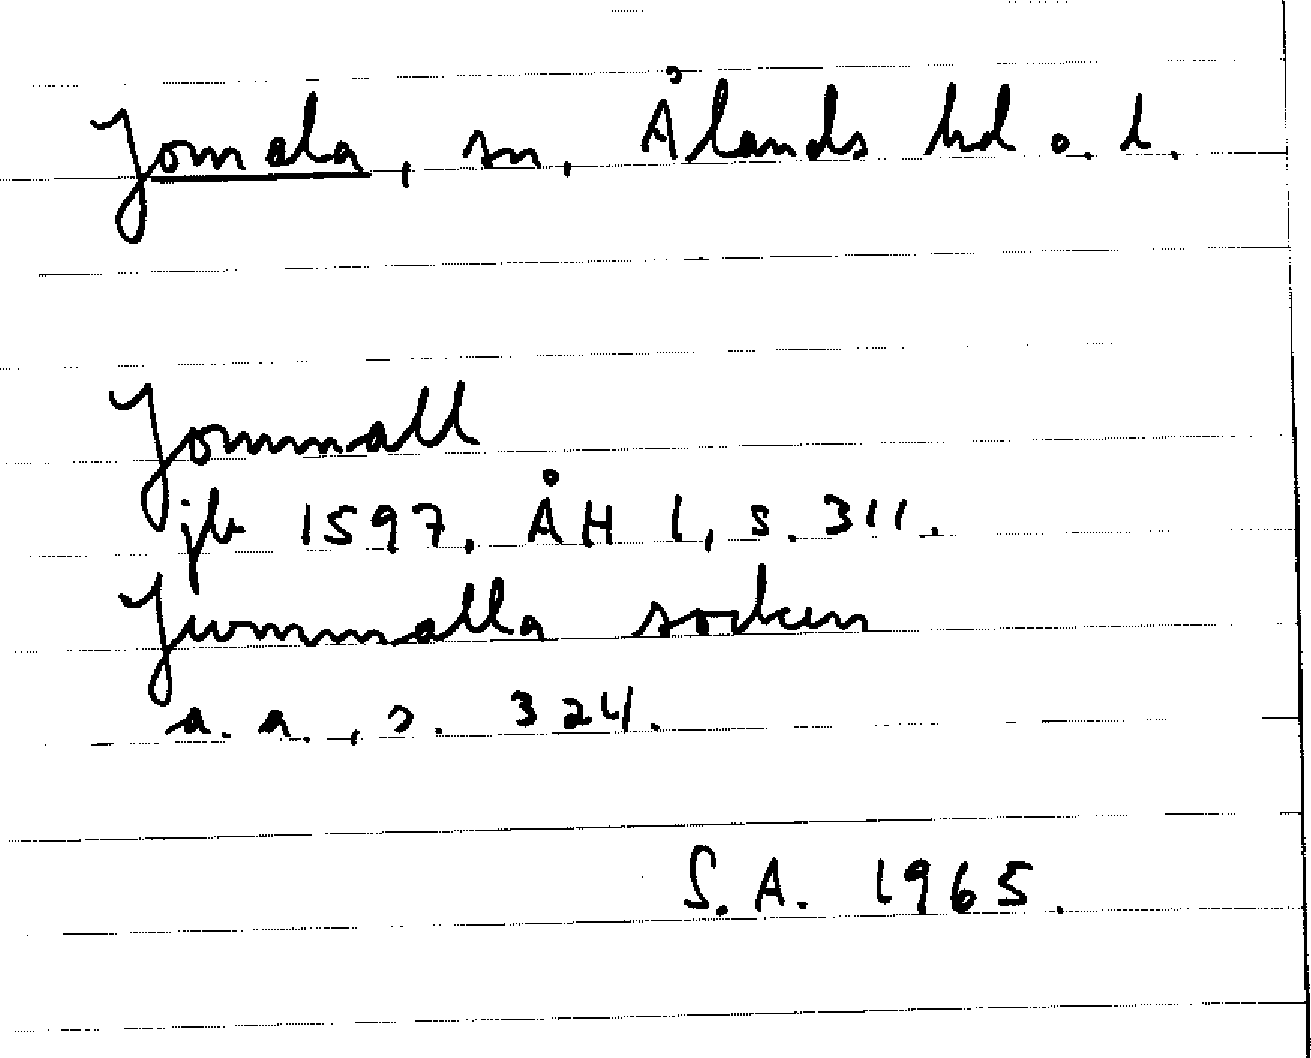 Jomala, sn, Ålands hd o. l.
Jommall
jb 1597. ÅH 1, s. 311.
Jummalla socken
a. a., s. 324.
S.A. 1965.